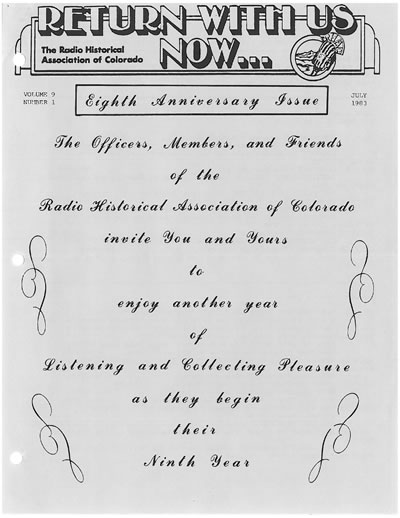 RETURN WITH US
NOW...
The Radio Historical
Association of Colorado
VOLUME 9
NUMBER 1
JULY
1983
Eighth Anniversary Issue
The Officers, Members, and Friends
of the
Radio Historical Association of Colorado
invite You and Yours
to
enjoy another year
of
Listening and Collecting Pleasure
as they begin
their
Ninth Year